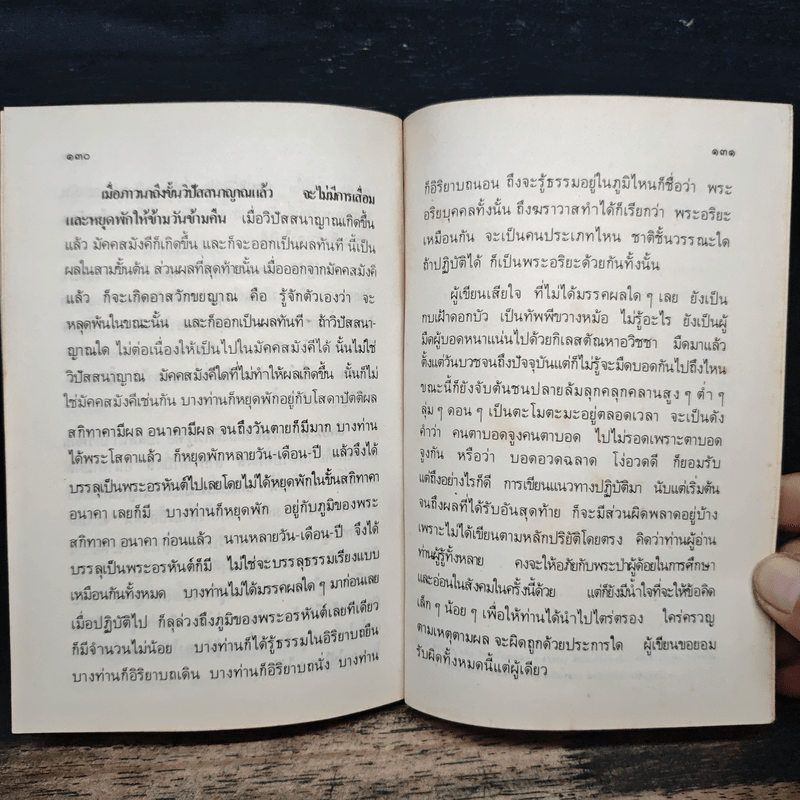 ๑๓๐
เมื่อภาวนาถึงขั้นวิปัสสนาญาณแล้ว จะไม่มีการเสื่อม
และหยุดพักให้ข้ามวันข้ามคืน เมื่อวิปัสสนาญาณเกิดขึ้น
แล้ว มัคคสมังคีก็เกิดขึ้น และก็จะออกเป็นผลทันที นี้เป็น
ผลในสามขั้นต้น ส่วนผลที่สุดท้ายนั้น เมื่อออกจากมัคคสมังคี
แล้ว ก็จะเกิดอาสวักขยญาณ คือ รู้จักตัวเองว่า จะ
หลุดพ้นในขณะนั้น และก็ออกเป็นผลทันที ถ้าวิปัสสนา-
ญาณใด ไม่ต่อเนื่องให้เป็นไปในมัคคสมังคีได้ นั้นไม่ใช่
วิปัสสนาญาณ มัคคสมังคีใดที่ไม่ทำให้ผลเกิดขึ้น นั้นก็ไม่
ใช่มัคคสมังคีเช่นกัน บางท่านก็หยุดพักอยู่กับโสดาปัตติผล
สกิทาคามีผล อนาคามีผล จนถึงวันตายก็มีมาก บางท่าน
ได้พระโสดาแล้ว ก็หยุดพักหลายวัน-เดือน-ปี แล้วจึงได้
บรรลุเป็นพระอรหันต์ไปเลยโดยไม่ได้หยุดพักในขั้นสกิทาคา
อนาคา เลยก็มี บางท่านก็หยุดพัก อยู่กับภูมิของพระ
สกิทาคา อนาคา ก่อนแล้ว นานหลายวัน-เดือน-ปี จึงได้
บรรลุเป็นพระอรหันต์ก็มี ไม่ใช่จะบรรลุธรรมเรียงแบบ
เหมือนกันทั้งหมด บางท่านไม่ได้มรรคผลใด ๆ มาก่อนเลย
เมื่อปฏิบัติไป ก็ลุล่วงถึงภูมิของพระอรหันต์เลยทีเดียว
ก็มีจำนวนไม่น้อย บางท่านก็ได้รู้ธรรมในอิริยาบถยืน
บางท่านก็อิริยาบถเดิน บางท่านก็อิริยาบถนั่ง บางท่าน
๑๓๑
ก็อิริยาบถนอน ถึงจะรู้ธรรมอยู่ในภูมิไหนก็ชื่อว่า พระ
อริยบุคคลทั้งนั้น ถึงฆราวาสทำได้ก็เรียกว่า พระอริยะ
เหมือนกัน จะเป็นคนประเภทไหน ชาติชั้นวรรณะใด
ถ้าปฏิบัติได้ ก็เป็นพระอริยะด้วยกันทั้งนั้น
ผู้เขียนเสียใจ ที่ไม่ได้มรรคผลใด ๆ เลย ยังเป็น
กบเฝ้าดอกบัว เป็นทัพพีขวางหม้อ ไม่รู้อะไร ยังเป็นผู้
มืดผู้บอดหนาแน่นไปด้วยกิเลสตัณหาอวิชชา มืดมาแล้ว
ตั้งแต่วันบวชจนถึงปัจจุบันแต่ก็ไม่รู้จะมืดบอดกันไปถึงไหน
ขณะนี้ก็ยังจับต้นชนปลายล้มลุกคลุกคลานสูง ๆ ต่ำ ๆ
ลุ่ม ๆ ดอน ๆ เป็นตะโมตะมะอยู่ตลอดเวลา จะเป็นดัง
คำว่า คนตาบอดจูงคนตาบอด ไปไม่รอดเพราะตาบอด
จูงกัน หรือว่า บอดอวดฉลาด โง่อวดดี ก็ยอมรับ
แต่ถึงอย่างไรก็ดี การเขียนแนวทางปฏิบัติมา นับแต่เริ่มต้น
จนถึงผลที่ได้รับอันสุดท้าย ก็จะมีส่วนผิดพลาดอยู่บ้าง
เพราะไม่ได้เขียนตามหลักปริยัติโดยตรง คิดว่าท่านผู้อ่าน
ท่านผู้รู้ทั้งหลาย คงจะให้อภัยกับพระป่าผู้ด้อยในการศึกษา
และอ่อนในสังคมในครั้งนี้ด้วย แต่ก็ยังมีน้ำใจที่จะให้ข้อคิด
เล็ก ๆ น้อย ๆ เพื่อให้ท่านได้นำไปไตร่ตรอง ใคร่ครวญ
ตามเหตุตามผล จะผิดถูกด้วยประการใด ผู้เขียนขอยอม
รับผิดทั้งหมดนี้แต่ผู้เดียว